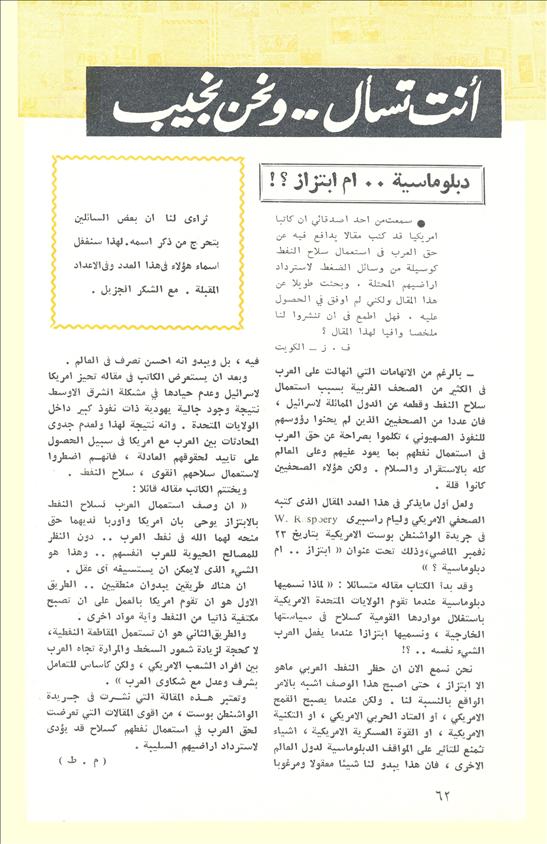 أنت تسأل .. ونحن نجيب
دبلوماسية .. ام ابتزاز ؟!
● سمعت من احد اصدقائي ان كاتبا
امريكيا قد كتب مقالا يدافع فيه عن
حق العرب في استعمال سلاح النفط
كوسيلة من وسائل الضغط لاسترداد
اراضيهم المحتلة . وبحثت طويلا عن
هذا المقال ولكني لم اوفق في الحصول
عليه . فهل اطمع في ان تنشروا لنا
ملخصا وافيا لهذا المقال ؟
ف . ز ـ الكويت
ـ بالرغم من الاتهامات التي انهالت على العرب
في الكثير من الصحف الغربية بسبب استعمال
سلاح النفط وقطعه عن الدول الممالئة لاسرائيل ،
فان عددا من الصحفيين الذين لم يحنوا رؤوسهم
للنفوذ الصهيوني ، تكلموا بصراحة عن حق العرب
في استعمال نفطهم بما يعود عليهم وعلى العالم
كله بالاستقرار والسلام . ولكن هؤلاء الصحفيين
كانوا قلة .
ولعل أول مايذكر في هذا العدد المقال الذى كتبه
الصحفي الامريكي وليام راسبيرى
في جريدة الواشنطن بوست الامريكية بتاريخ ٢٣
نفمبر الماضي،وذلك تحت عنوان « ابتزاز .. ام
دبلوماسية ؟ »
وقد بدأ الكتاب مقاله متسائلا : « لماذا نسميها
دبلوماسية عندما تقوم الولايات المتحدة الامريكية
باستغلال مواردها القومية كسلاح في سياستها
الخارجية ، ونسميها ابتزازا عندما يفعل العرب
الشيء نفسه .. ؟!
نحن نسمع الان ان حظر النفط العربي ماهو
الا ابتزاز ، حتى اصبح هذا الوصف اشبه بالامر
الواقع بالنسبة لنا . ولكن عندما يصبح القمح
الامريكي ، أو العتاد الحربي الامريكي ، او التكنية
الامريكية ، او القوة العسكرية الامريكية ، اشياء
تمنع للتأثير على المواقف الدبلوماسية لدول العالم
الاخرى ، فان هذا يبدو لنا شيئا معقولا ومرغوبا
تراءى لنا ان بعض السائلين
يتحرج من ذكر اسمه . لهذا سنغفل
اسماء هؤلاء في هذا العدد وفي الاعداد
المقبلة . مع الشكر الجزيل .
فيه ، بل ويبدو انه احسن تصرف في العالم .
وبعد ان يستعرض الكاتب في مقاله تحيز امريكا
لاسرائيل وعدم حيادها في مشكلة الشرق الاوسط
نتيجة وجود جالية يهودية ذات نفوذ كبير داخل
الولايات المتحدة . وانه نتيجة لهذا ولعدم جدوى
المحادثات بين العرب مع امريكا في سبيل الحصول
على تاييد لحقوقهم العادلة ، فانهم اضطروا
لاستعمال سلاحهم القوى ، سلاح النفط .
ويختتم الكاتب مقاله قائلا :
« ان وصف استعمال العرب لسلاح النفط
بالابتزاز يوحى بان امريكا واوربا لديهما حق
منحه لهما الله في نفط العرب .. دون النظر
للمصالح الحيوية للعرب انفسهم .. وهذا هو
الشيء الذى لايمكن ان يستسيغه أى عقل .
ان هناك طريقين يبدوان منطقيين .. الطريق
الاول هو ان تقوم امريكا بالعمل على ان تصبح
مكتفية ذاتيا من النفط وأية مواد اخرى .
والطريق الثاني هو ان تستعمل المقاطعة النفطية،
لا كحجة لزيادة شعور السخط والمرارة تجاه العرب
بين افراد الشعب الامريكي ، ولكن كأساس للتعامل
بشرف وعدل مع شكاوى العرب » .
وتعتبر هذه المقالة التي نشرت في جريدة
الواشنطن بوست ، من اقوى المقالات التي تعرضت
لحق العرب في استعمال نفطهم كسلاح قد يؤدى
لاسترداد اراضيهم السليبة .
( م . ط )
٦٢